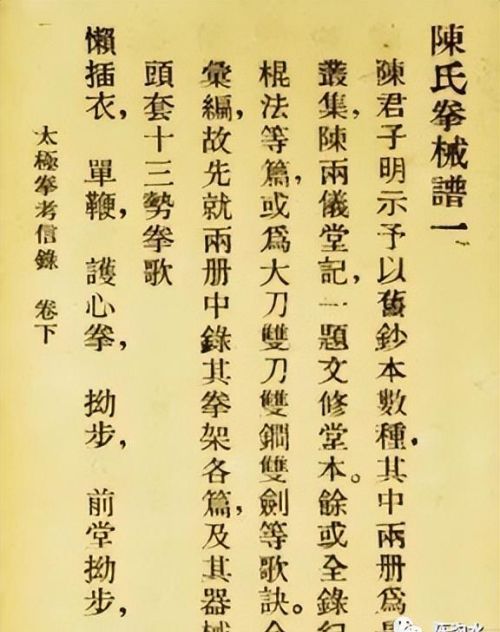 陳氏拳械譜一
陳君子明示予以舊鈔本數種，其中兩册爲
叢集，陳兩儀堂記，一題文修堂本。餘或全錄
棍法等篇，或爲大刀雙刀雙鐧雙劍等歌訣。
彙編，故先就兩册中錄其拳架各篇，及其器械
頭套十三勢拳歌
懶插衣，單鞭，護心拳，拗步，前堂拗步，
太極拳考信錄 卷下